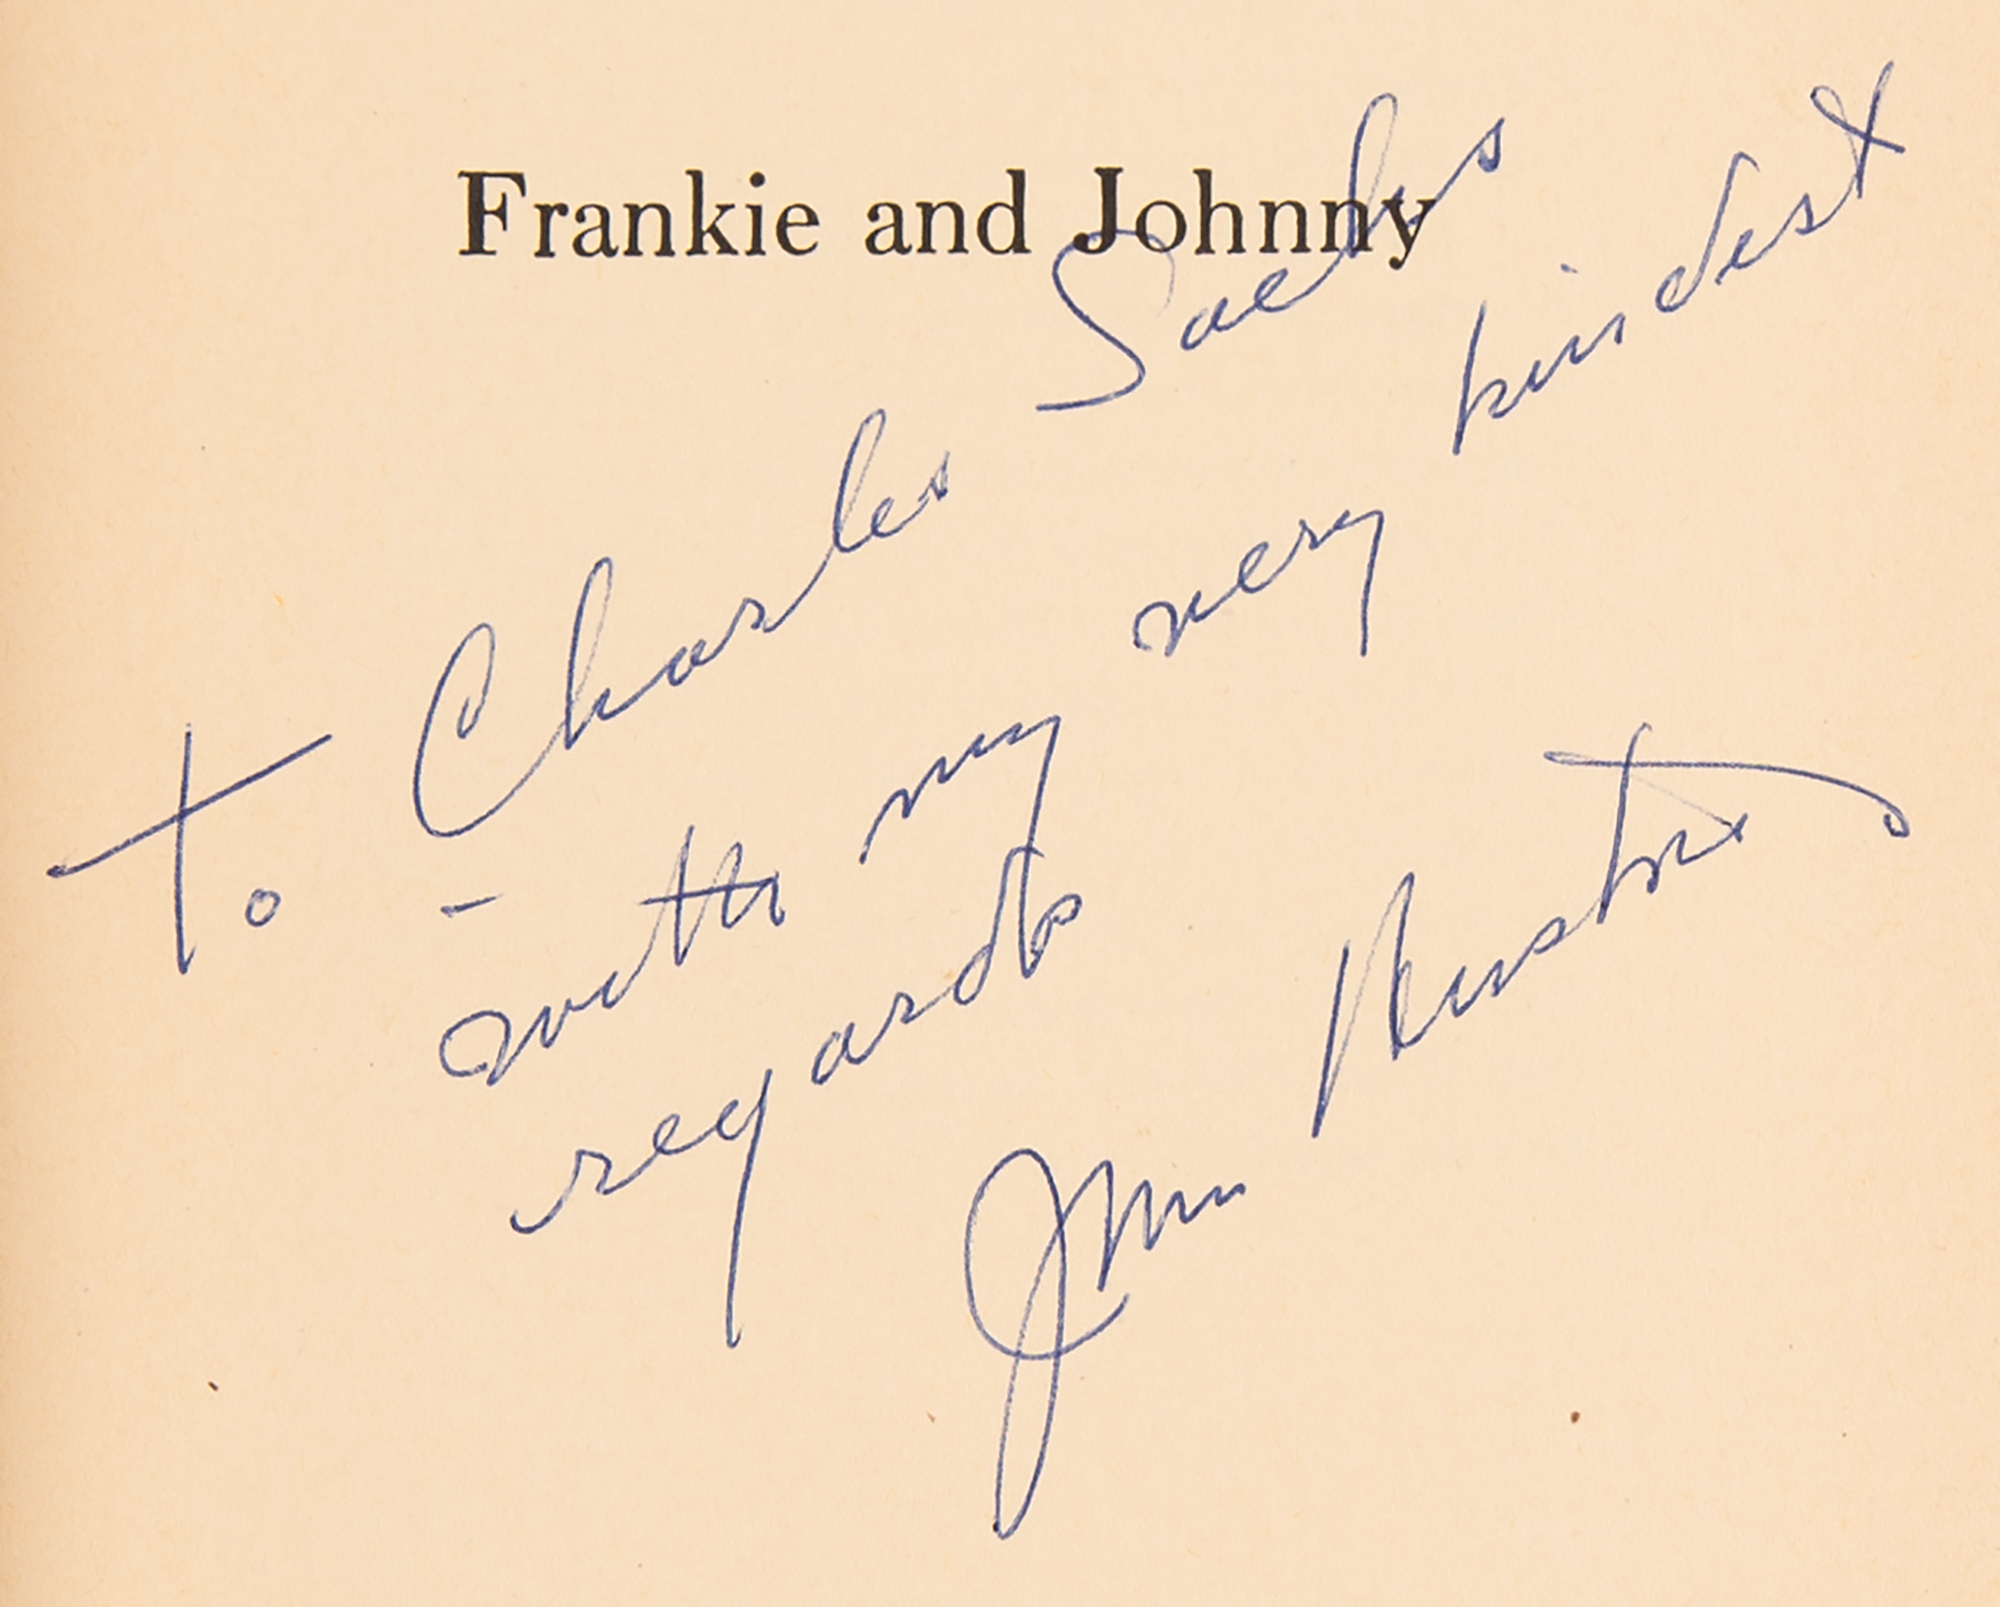 Frankie and Johnny
To Charles Sachs
- with my very kindest
regards
John Huston